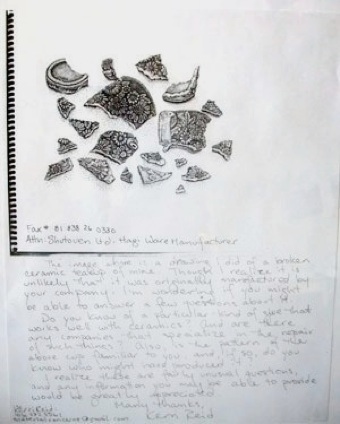 Fax # 81 838 26 0380
Attn: Ltd. Hagi Ware Manufacturer
The image above is a drawing I did of a broken
ceramic teacup of mine. Though I realize it is
unlikely that it was originally manufactured by
your company, I wondered if you might
be able to answer a few questions about it.
Do you know of a particular kind of glue that
works well with ceramics? And are there
any companies that specialize in the repair
of such things? Also, is the pattern of the
above cup familiar to you, and, if so, do you
know who might have produced it?
I realize these are fairly unusual questions,
and any information you may be able to provide
would be greatly appreciated.
Many thanks,
Kerri Reid
Kerri Reid